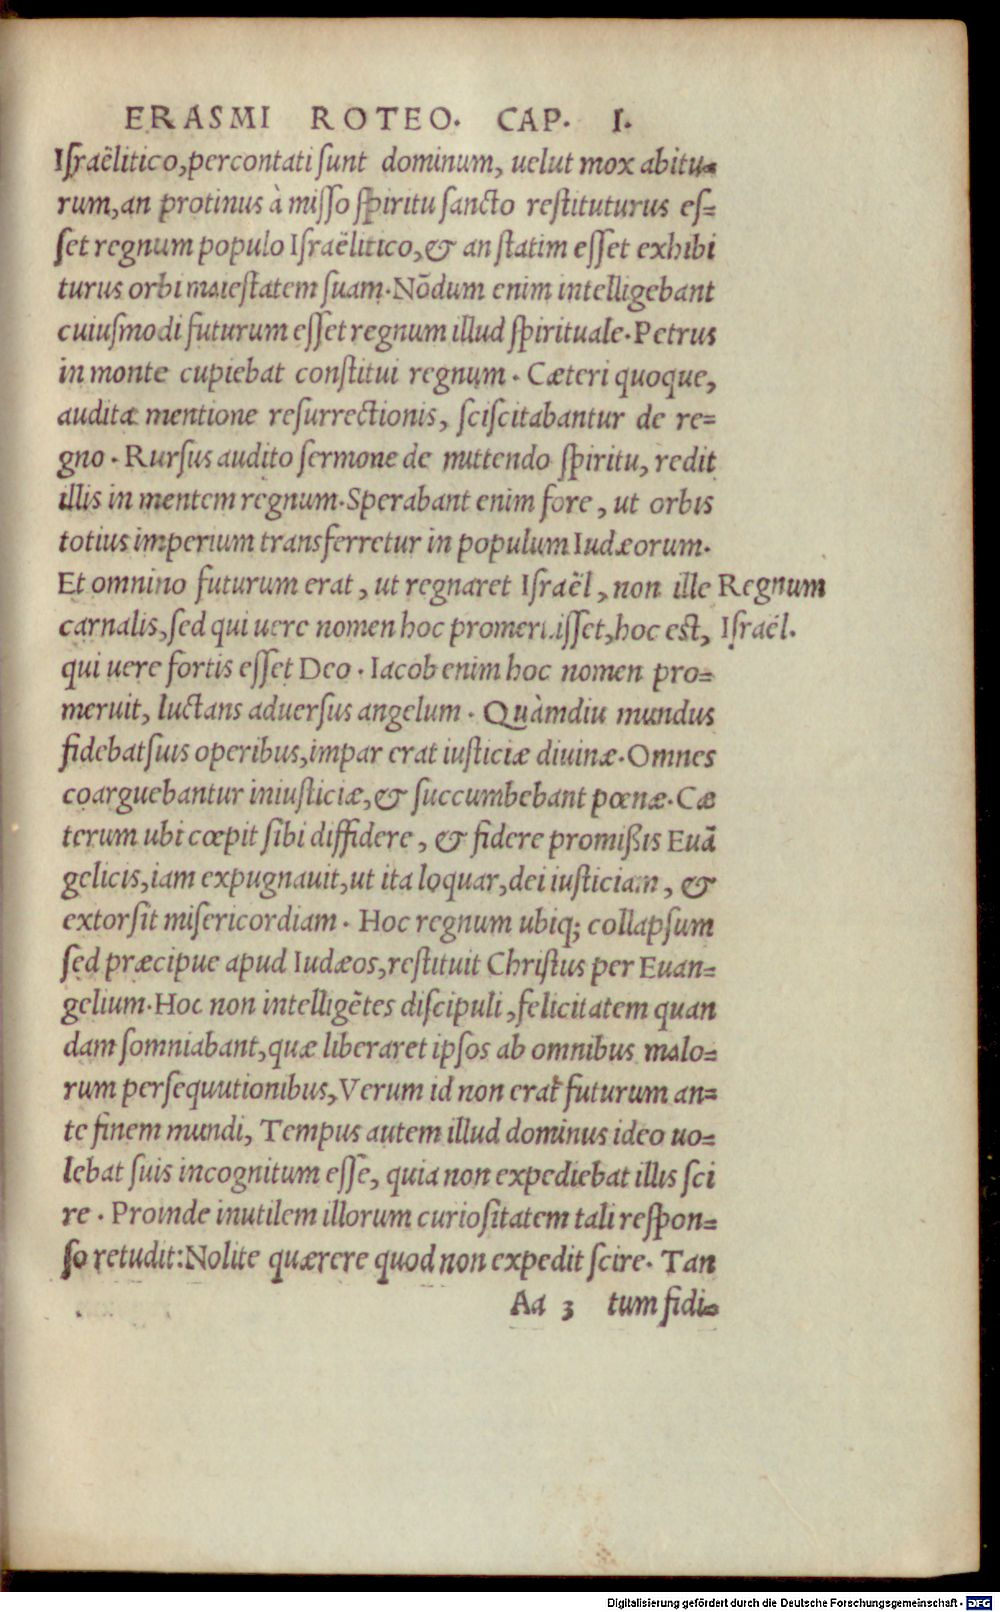 ERASMI ROTEO. CAP. I.
Iſraëlitico, percontati ſunt dominum, uelut mox abitu-
rum, an protinus à miſſo ſpiritu ſancto reſtituturus eſ=
ſet regnum populo Iſraëlitico, & an ſtatim eſſet exhibi
turus orbi maieſtatem ſuam. Nōdum enim intelligebant
cuiuſmodi futurum eſſet regnum illud ſpirituale. Petrus
in monte cupiebat conſtitui regnum. Cæteri quoque,
audita mentione reſurrectionis, ſciſcitabantur de re=
gno. Rurſus audito ſermone de mittendo ſpiritu, redit
illis in mentem regnum. Sperabant enim fore, ut orbis
totius imperium transferretur in populum Iudæorum.
Et omnino futurum erat, ut regnaret Iſraël, non ille Regnum
carnalis, ſed qui uere nomen hoc promeruiſſet, hoc eſt, Iſraël.
qui uere fortis eſſet Deo. Iacob enim hoc nomen pro=
meruit, luctans aduerſus angelum. Quàmdiu mundus
fidebat ſuis operibus, impar erat iuſticiæ diuinæ. Omnes
coarguebantur iniuſticiæ, & ſuccumbebant pœnæ. Cæ
terum ubi cœpit ſibi diffidere, & fidere promißis Euā
gelicis, iam expugnauit, ut ita loquar, dei iuſticiam, &
extorſit miſericordiam. Hoc regnum ubiq; collapſum
ſed præcipue apud Iudæos, reſtituit Chriſtus per Euan=
gelium. Hoc non intelligētes diſcipuli, felicitatem quan
dam ſomniabant, quæ liberaret ipſos ab omnibus malo=
rum perſequutionibus, Verum id non erat futurum an=
te finem mundi, Tempus autem illud dominus ideo uo=
lebat ſuis incognitum eſſe, quia non expediebat illis ſci
re. Proinde inutilem illorum curioſitatem tali reſpon=
ſo retudit: Nolite quærere quod non expedit ſcire. Tan
Aa 3 tum fidi-
Digitalisierung gefördert durch die Deutsche Forschungsgemeinschaft - DFG